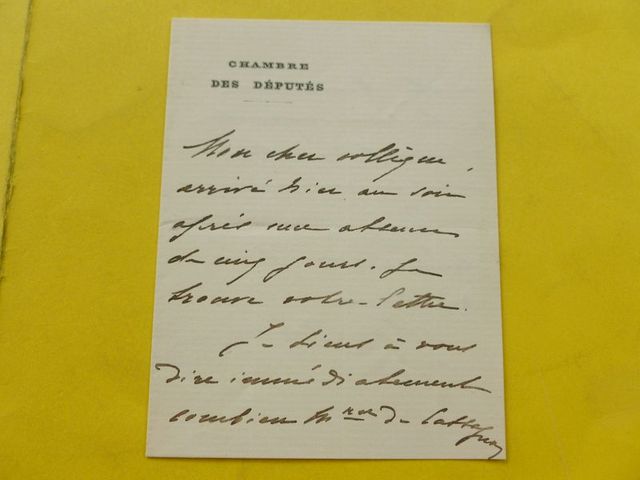 CHAMBRE
DES DÉPUTÉS
Mon cher collègue,
arrivé hier au soir
après une absence
de cinq jours. Je
trouve votre lettre.
Je tiens à vous
dire immédiatement
combien Mme de Cassagnac